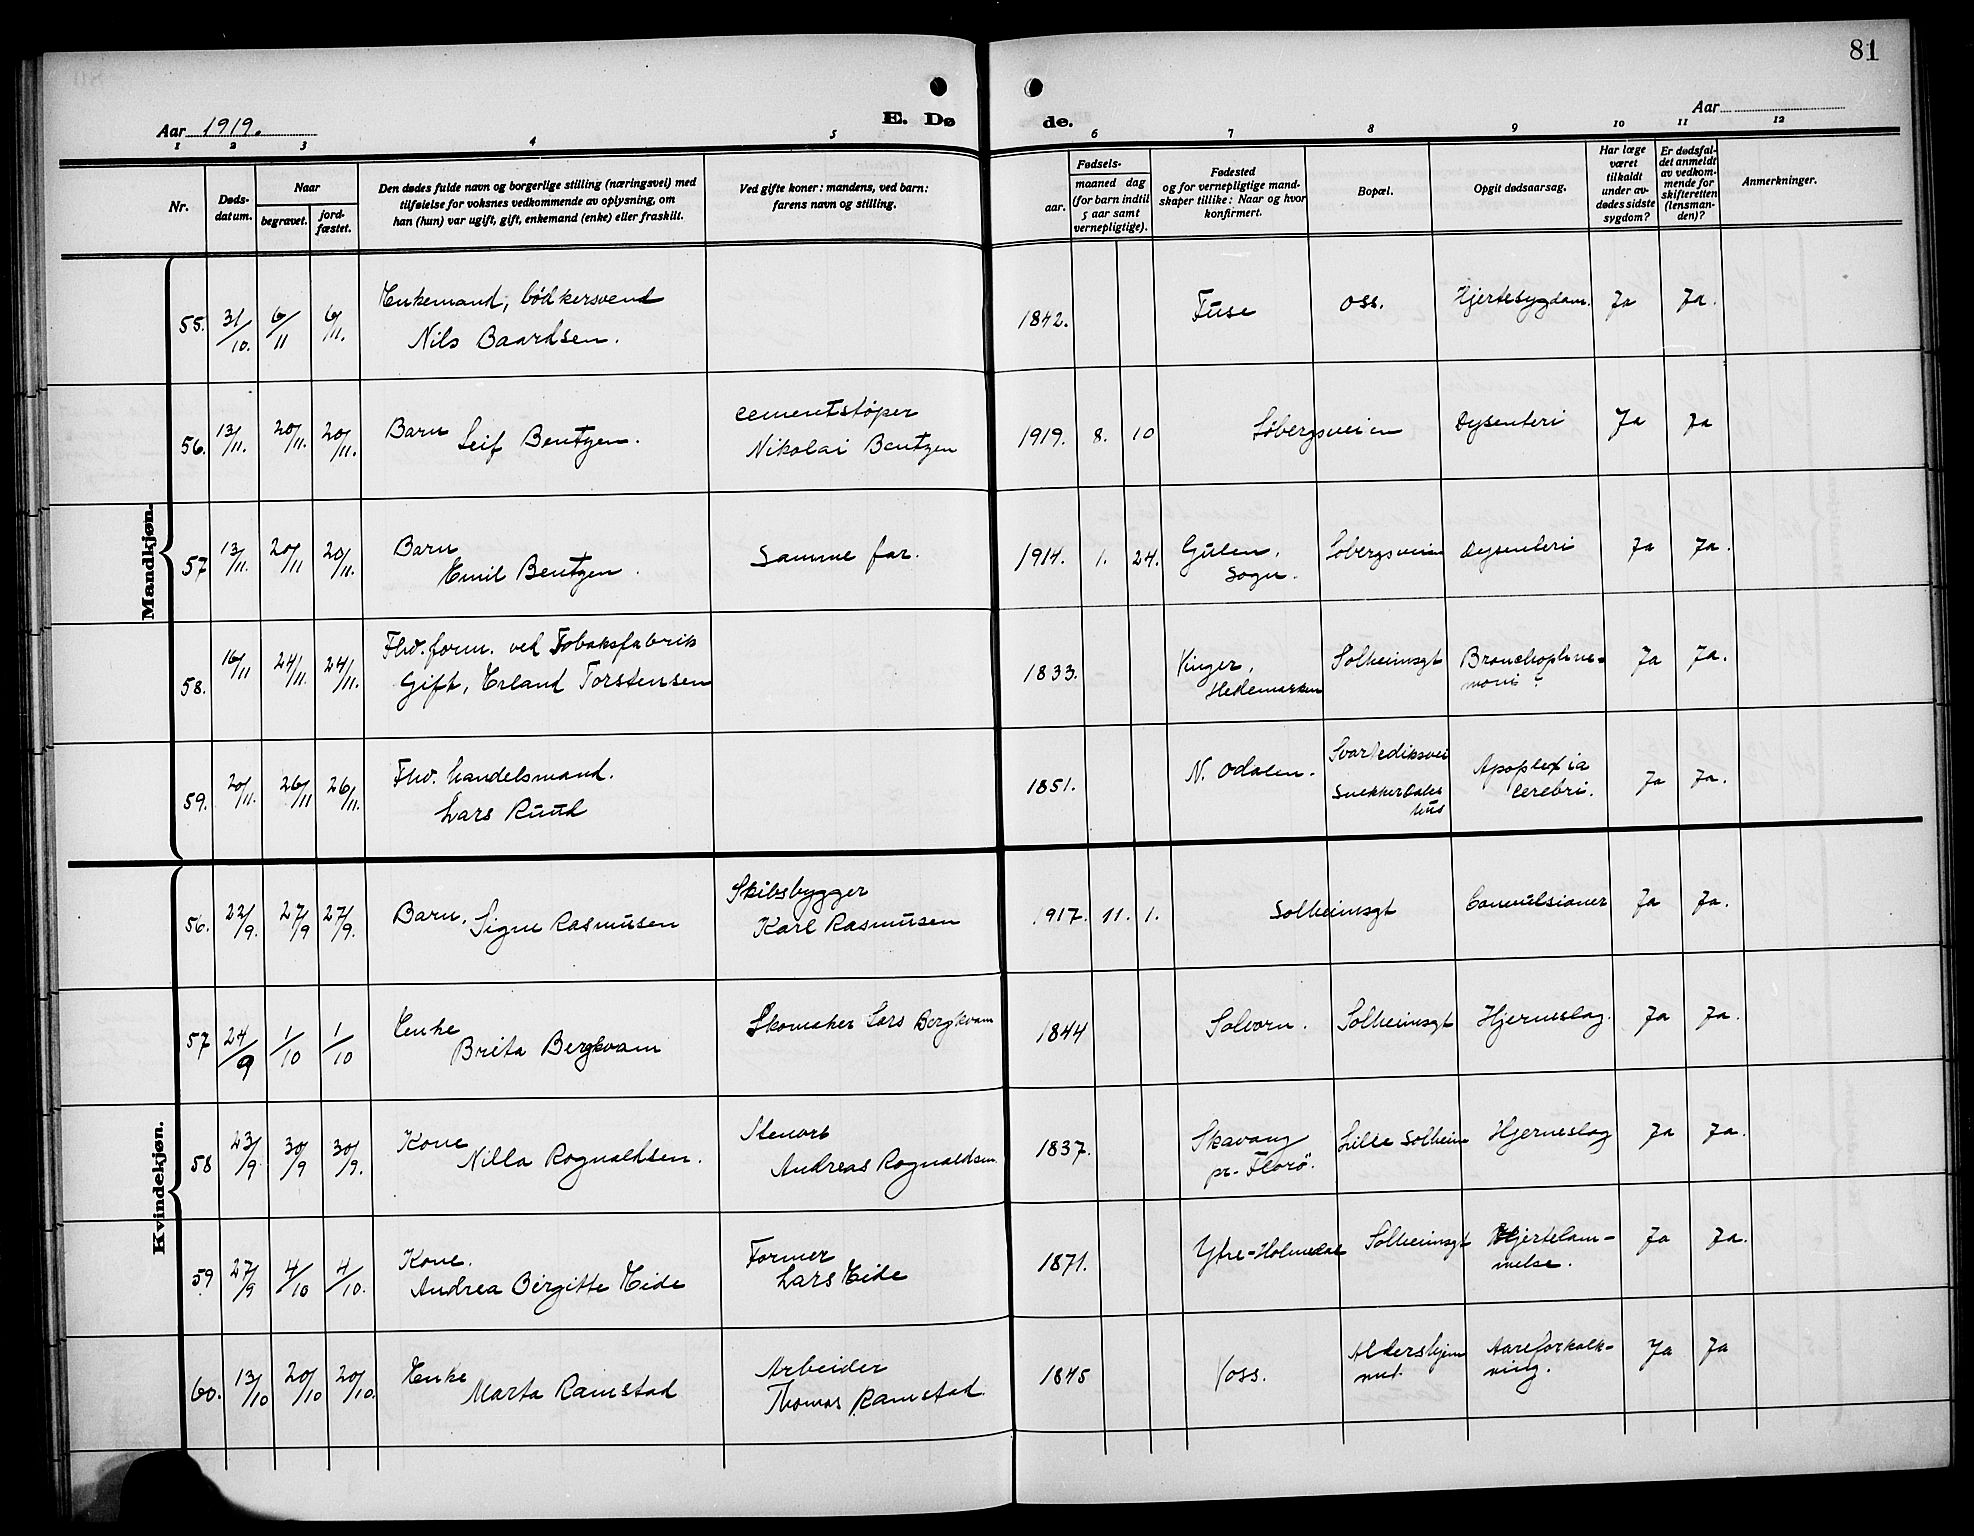 81
Aar 1919.
E. Dø
de.
Aar
1 2 3 4 5 6 7 8 9 10 11 12
Nr.
Døds-
datum.
Naar
begravet.
jord-
fæstet.
Den dødes fulde navn og borgerlige stilling (næringsvei) med
tilføielse for voksnes vedkommende av oplysning, om
han (hun) var ugift, gift, enkemand (enke) eller fraskilt.
Ved gifte koner: mandens, ved barn:
farens navn og stilling.
Fødsels-
aar.
maaned dag
(for barn indtil
5 aar samt
vernepligtige).
Fødested
og for vernepligtige mand-
skaper tillike: Naar og hvor
konfirmert.
Bopæl.
Opgit dødsaarsag.
Har læge
været
tilkaldt
under av-
dødes sidste
sygdom?
Er dødsfal-
det anmeldt
av vedkom-
mende for
skifteretten
(lensman-
den)?
Anmerkninger.
Mandkjøn.
55. 31/10. 6/11 6/11. Enkemand, bødkersvend
Nils Baardsen.
1842. Fuse Oss. Hjertesygdom. Ja Ja.
56. 13/11. 20/11. 20/11. Barn Leif Bentzen.
cementstøper
Nikolai Bentzen
1919. 8. 10 Søbergsveien Dysenteri Ja Ja
57 13/11. 20/11 20/11. Barn
Emil Bentzen.
Samme far.
1914. 1. 24. Gulen,
Sogn.
Søbergsveien Dysenteri Ja Ja.
58. 16/11 24/11. 24/11. Fhv. form. ved Tobaksfabrik
Gift, Erland Torstensen
1833. Vinger,
Hedemarken
Solheimsgt Bronchopneu-
moni?
Ja Ja.
59. 20/11. 26/11 26/11. Fhv. handelsmand.
Lars Ruud
1851. N. Odalen.
Svartediksvei
Snekkerbakes
hus
Apoplexia
cerebri.
Ja Ja.
Kvindekjøn.
56. 22/9. 27/9 27/9. Barn. Signe Rasmusen
Skibsbygger
Karl Rasmusen
1917. 11. 1. Solheimsgt Convulsioner Ja Ja.
57 24/9 1/10 1/10 Enke
Brita Bergkvam
Skomaker Lars Bergkvam
1844 Solvorn. Solheimsgt Hjerneslag. Ja Ja.
58 23/9. 30/9 30/9. Kone
Nilla Rognaldsen.
Stenarb
Andreas Rognaldsen.
1837. Skavang
pr. Florö.
Lille Solheim Hjerneslag Ja Ja.
59 27/9 4/10 4/10. Kone.
Andrea Birgitte Eide
Former
Lars Eide
1871. Ytre-Holmedal Solheimsgt Hjertelam-
melse.
Ja Ja.
60. 13/10 20/10 20/10. Enke
Marta Ramstad
Arbeider
Thomas Ramstad.
1845 Voss. Aldershjem
met.
Aareforkalk-
ning.
Ja Ja